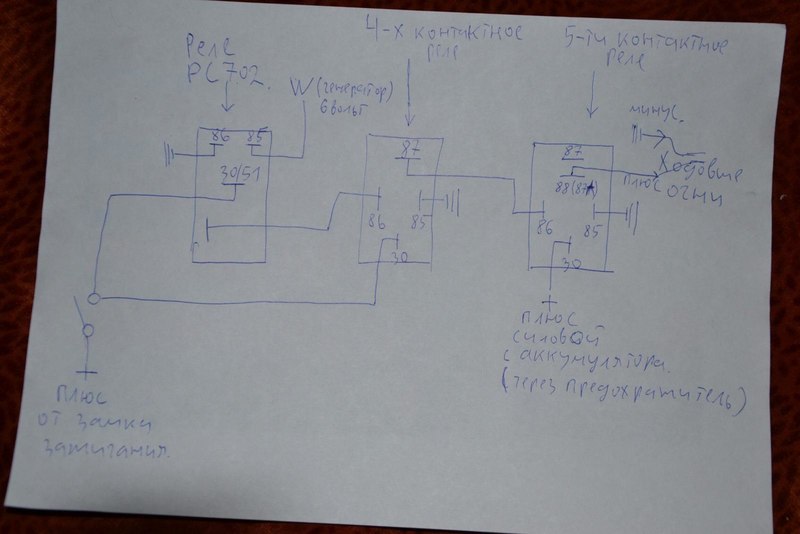 Реле
РС702.
W (генератор)
6 вольт
4-х контактное
реле
5-ти контактное
реле
минус.
86
85
30/51
87
86
85
30
87
88(87)
86
85
30
плюс
Ходовые
огни
плюс
силовой
с аккумулятора.
(через предохранитель)
плюс
от замка
зажигания.